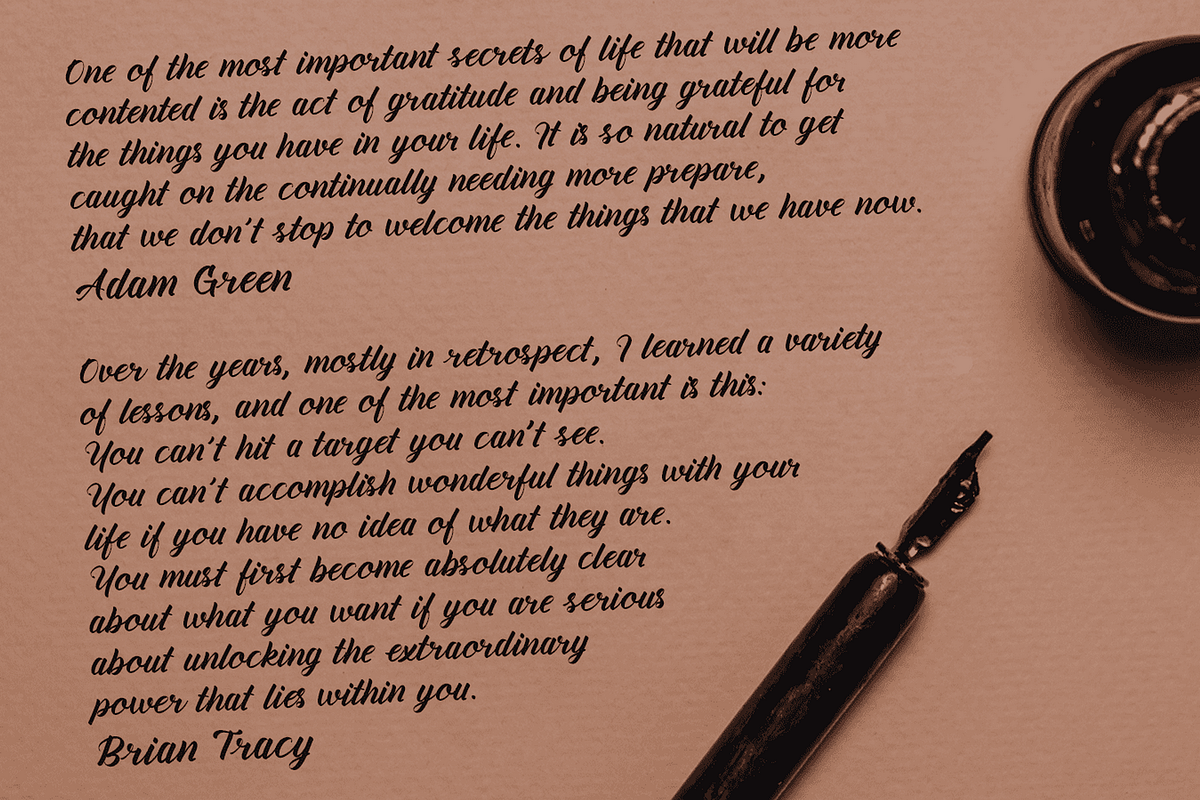 One of the most important secrets of life that will be more
contented is the act of gratitude and being grateful for
the things you have in your life. It is so natural to get
caught on the continually needing more prepare,
that we don't stop to welcome the things that we have now.
Adam Green
Over the years, mostly in retrospect, I learned a variety
of lessons, and one of the most important is this:
You can't hit a target you can't see.
You can't accomplish wonderful things with your
life if you have no idea of what they are.
You must first become absolutely clear
about what you want if you are serious
about unlocking the extraordinary
power that lies within you.
Brian Tracy